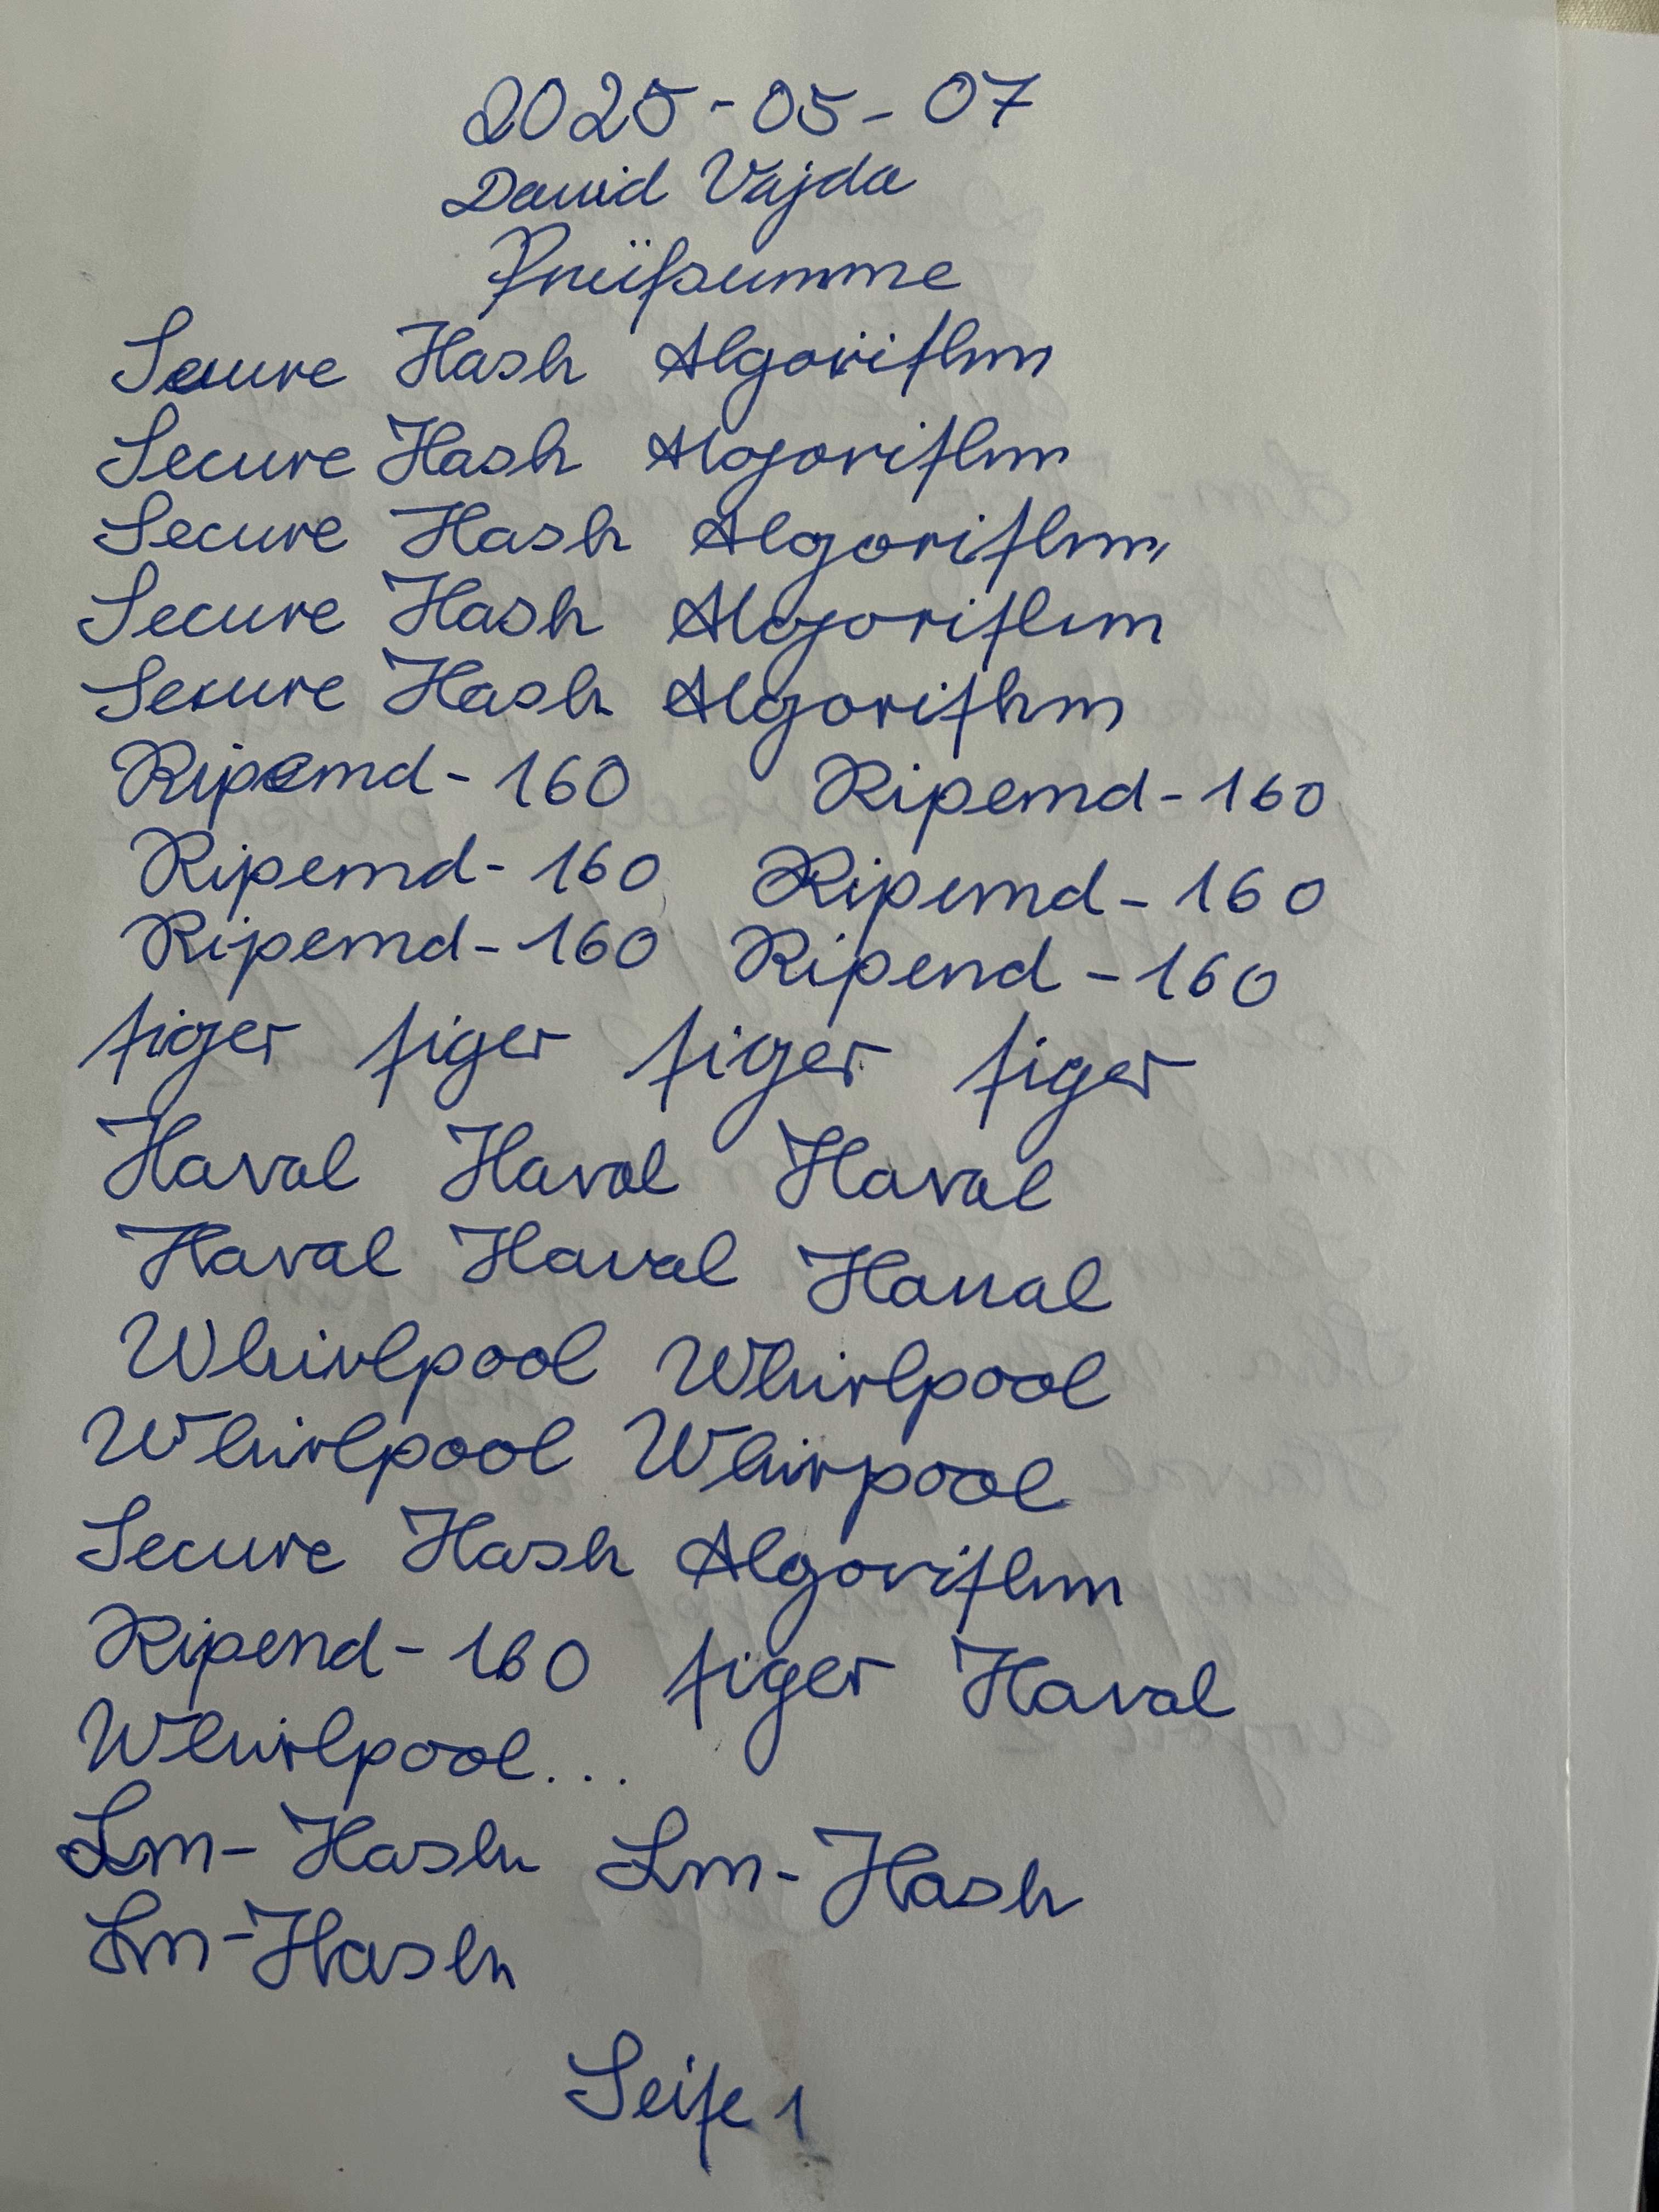 2025-05-07
David Vajda
Prüfsumme
Secure Hash Algorithm
Secure Hash Algorithm
Secure Hash Algorithm
Secure Hash Algorithm
Secure Hash Algorithm
Ripemd-160 Ripemd-160
Ripemd-160 Ripemd-160
Ripemd-160 Ripend-160
tiger tiger tiger tiger
Haval Haval Haval
Haval Haval Haval
Whirlpool Whirlpool
Whirlpool Whirpool
Secure Hash Algorithm
Ripend-160 tiger Haval
Whirlpool...
Lm-Hash Lm-Hash
Lm-Hash
Seite 1